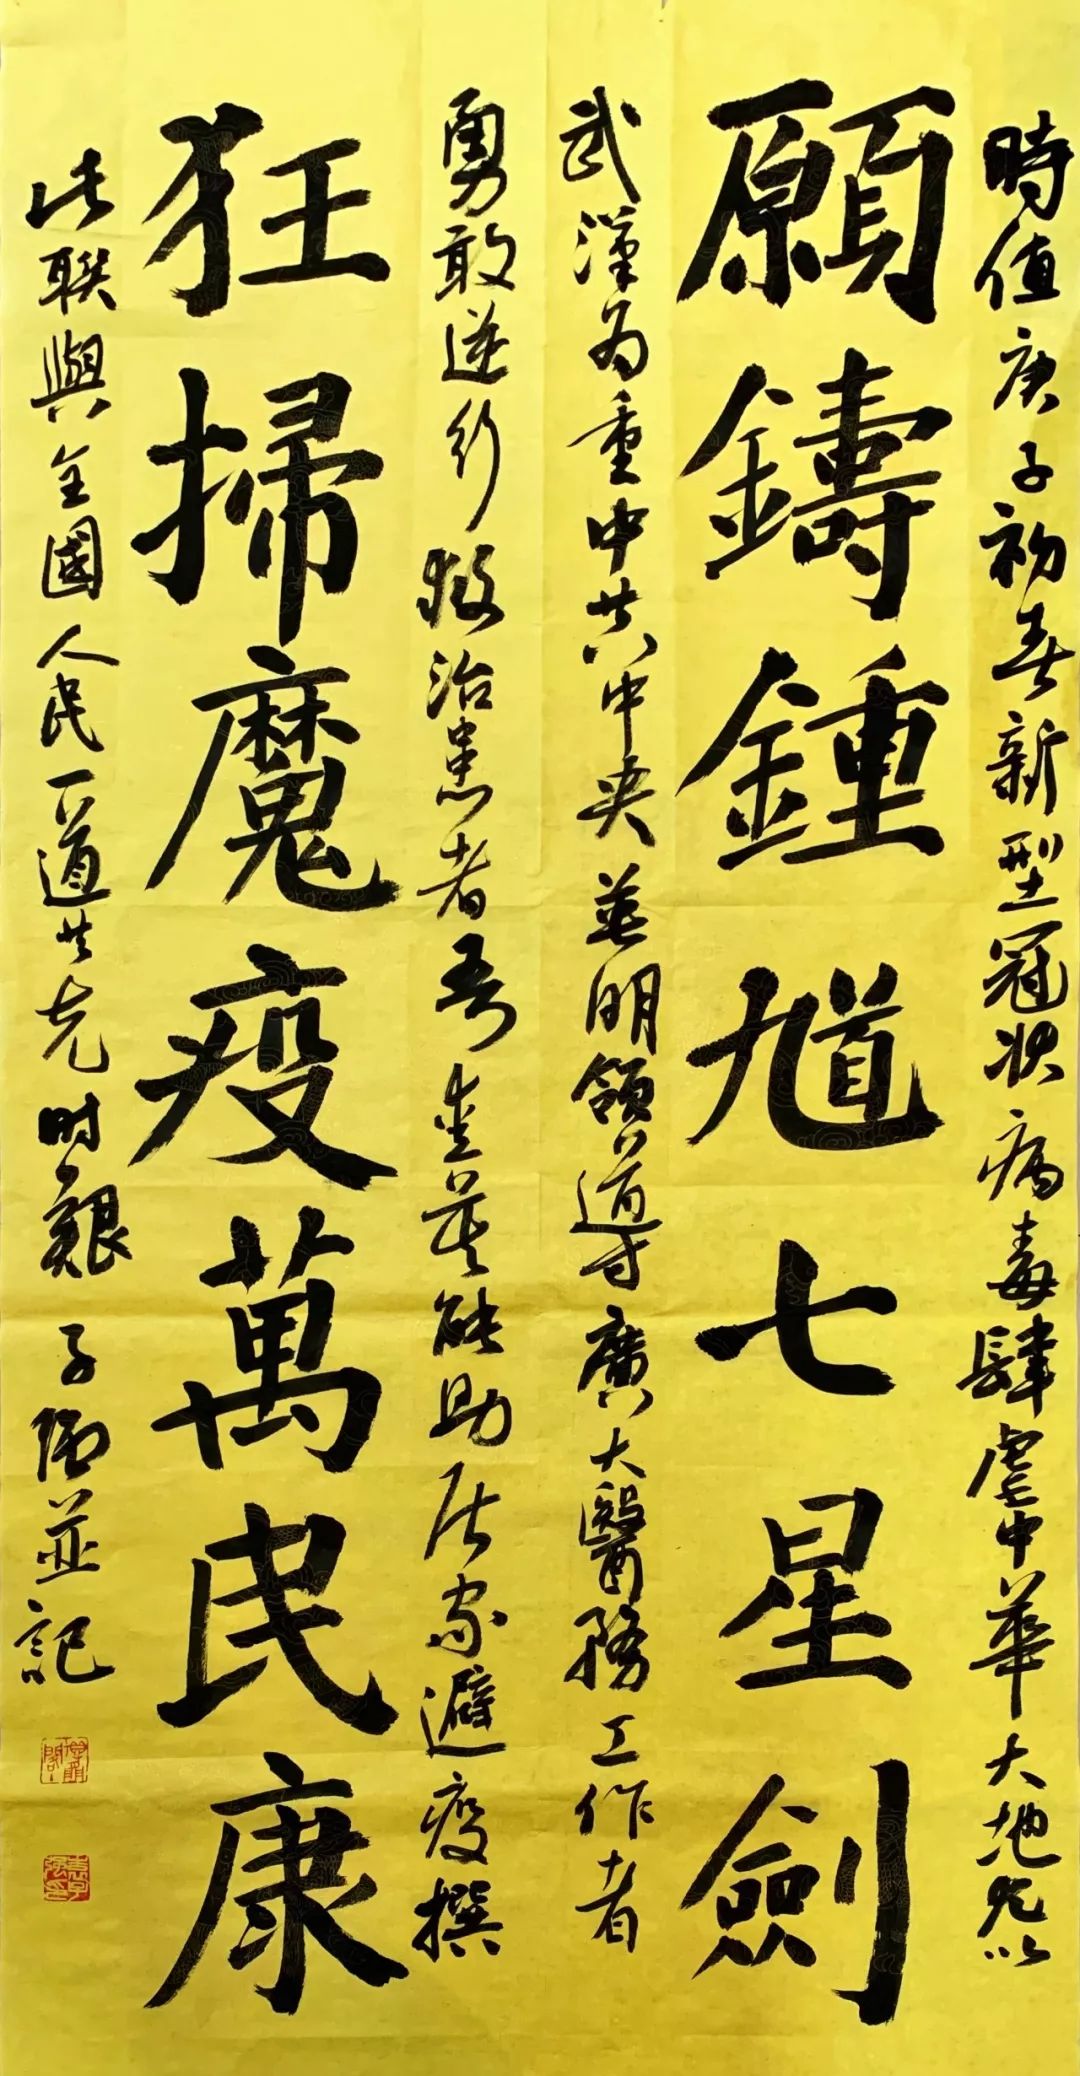 時值庚子初春新型冠状病毒肆虐中華大地尤以
願鑄鍾馗七星劍
武漢為重中共中央英明領導廣大醫務工作者
勇敢逆行救治患者吾輩莫能助居家避疫撰
狂掃魔疫萬民康
此聯與全國人民一道共克时艱 子陽並記